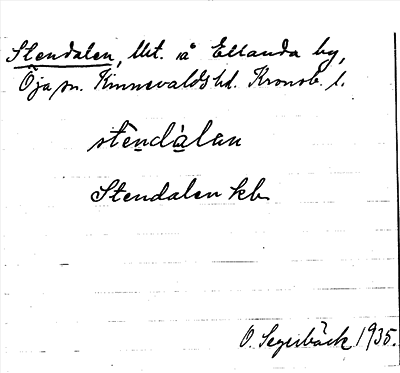 Stendalen, lht. å Ellanda by,
Öja sn. Kinnevalds hd. Kronob. l.
stendàlan
Stendalen kb
O. Segerbäck 1935.